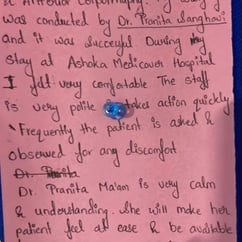 was conducted by Dr. Pranita Sanghavi
and it was succesful During my
stay at Ashoka Medicover Hospital
I felt very comfortable The staff
is very polite takes action quickly
Frequently the patient is asked &
observed for any discomfort
Dr. Pranita Ma'am is very calm
& understanding. She will make her
patient feel at ease & be available